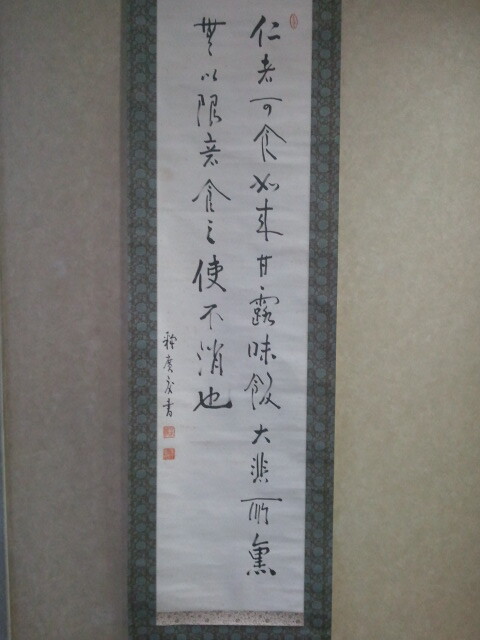 仁者可食如来甘露味飯大悲所熏
無以限意食之使不消也
釋廣度書